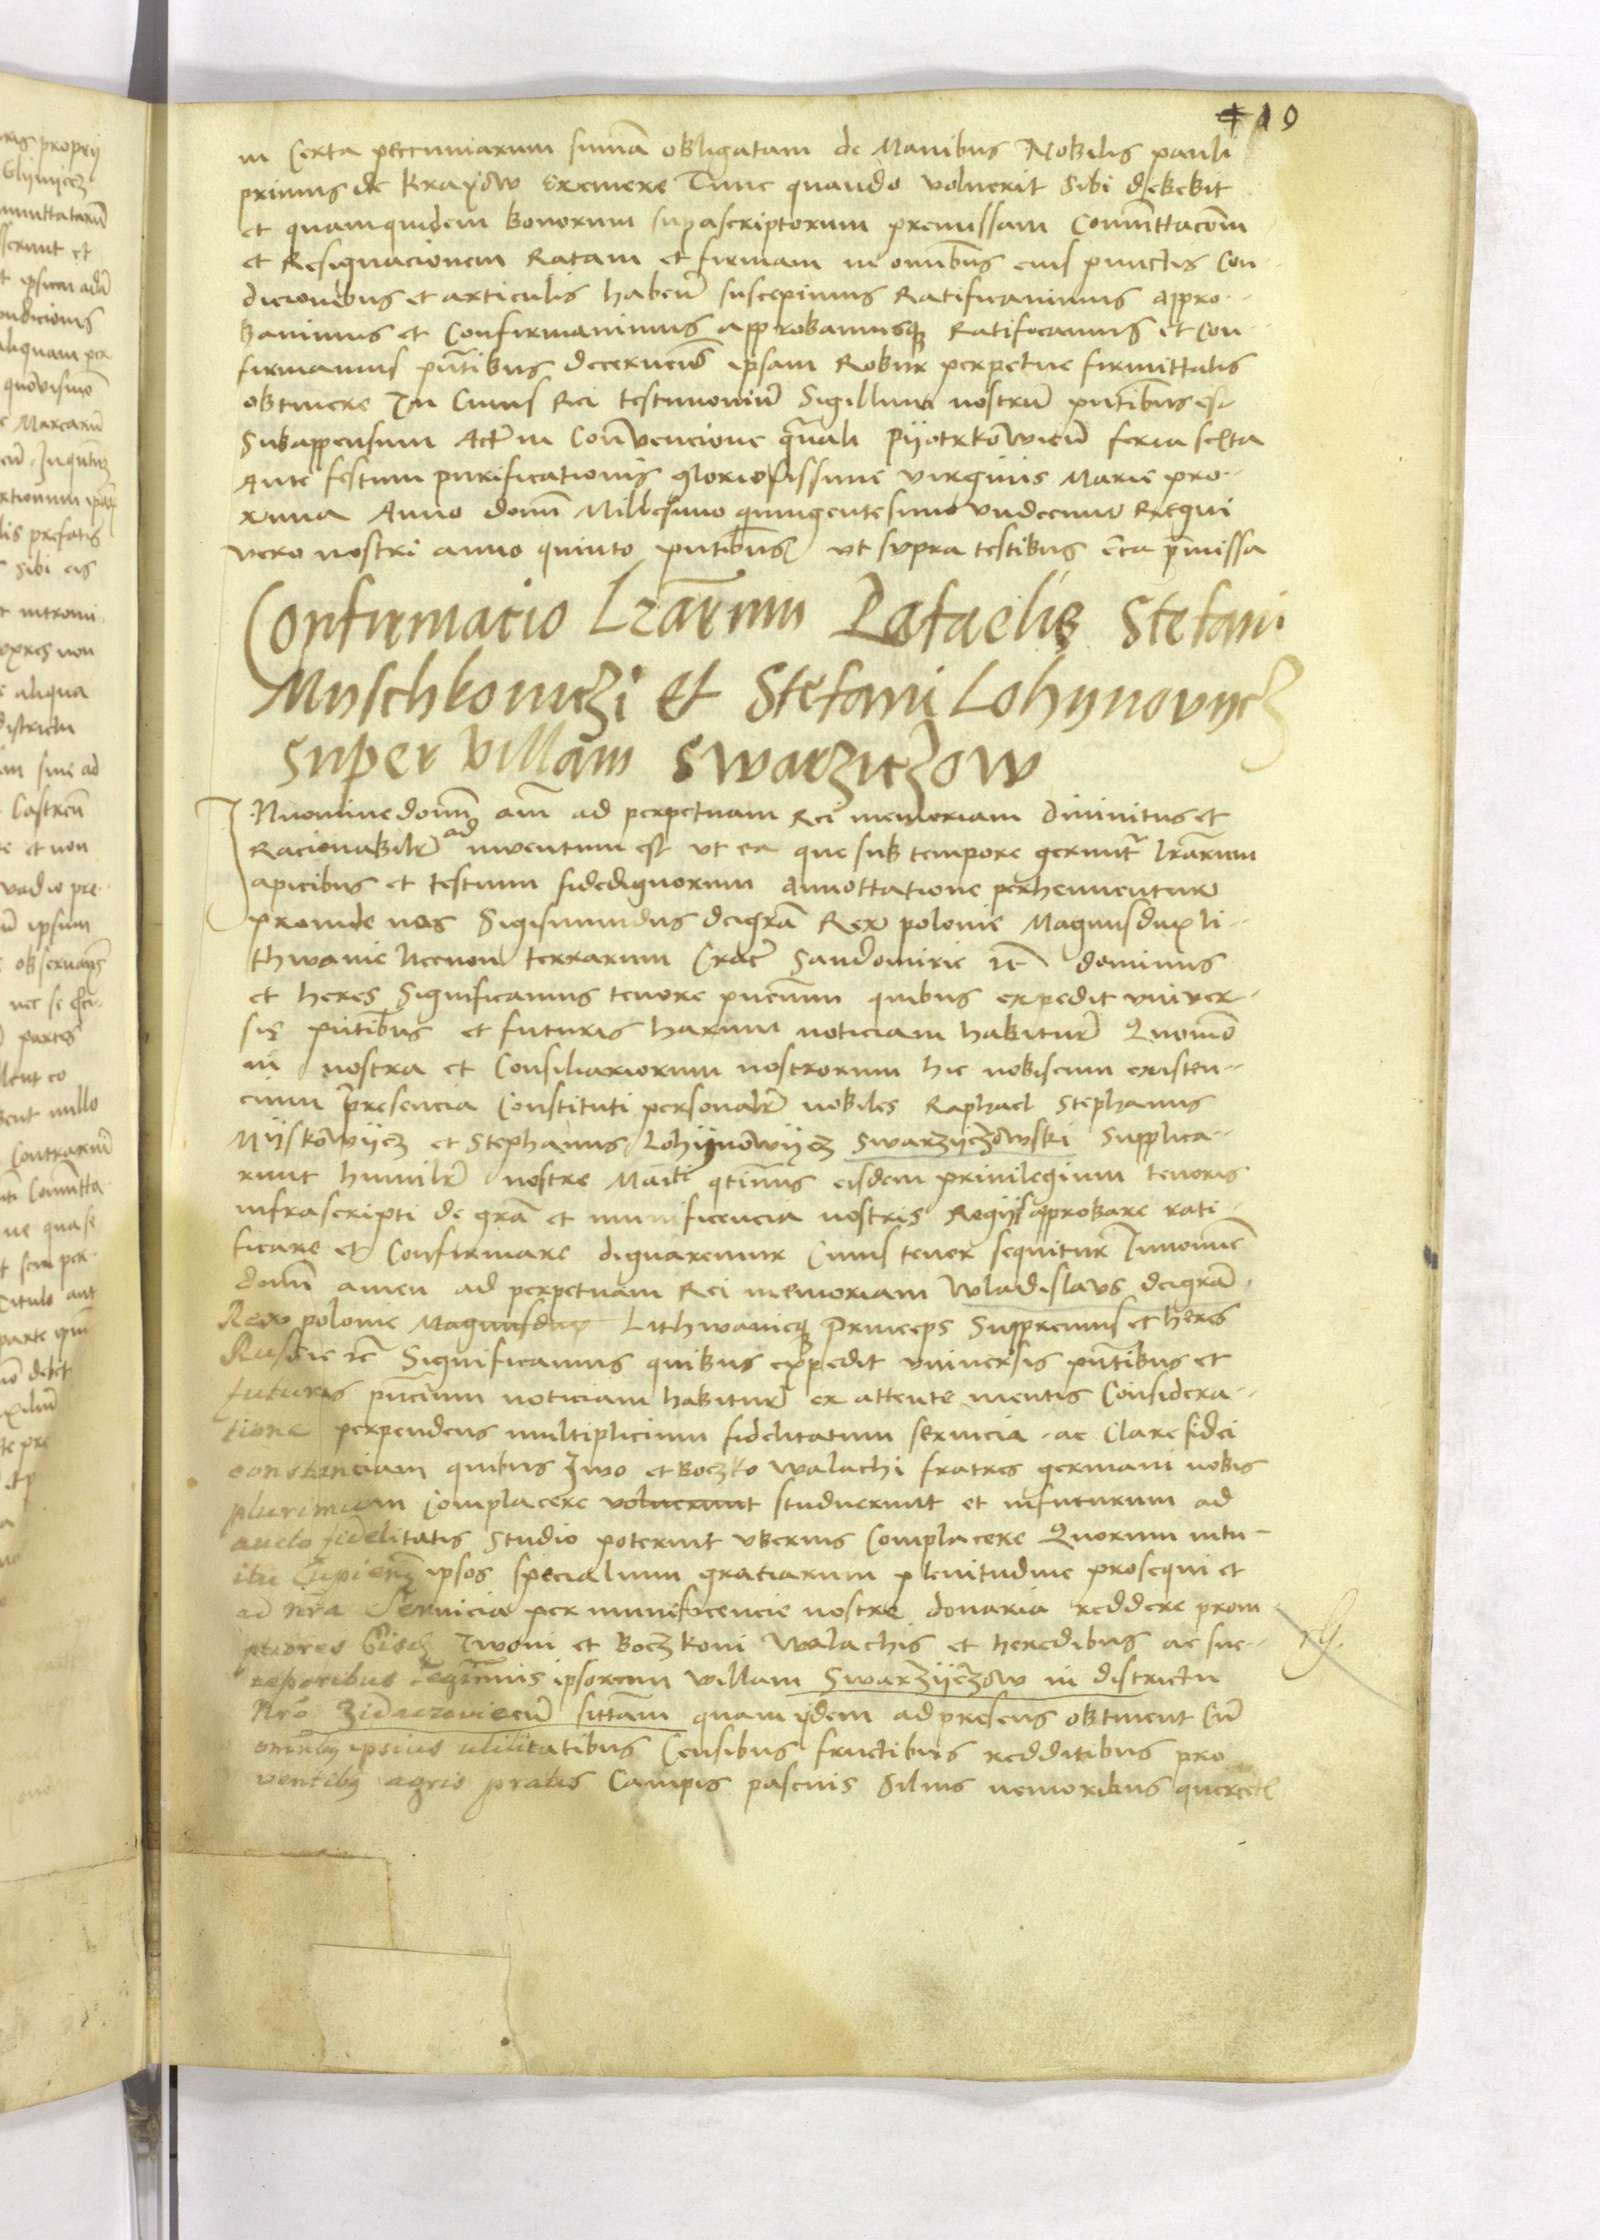 419
in Certa pecuniarum sumā obligatam de Manibus Nobilis pauli
primus de Kraÿow exemere Tunc quando voluerit Sibi debebit
et quamquidem bonorum supascriptorum premissam Com̄ittacōem
et Resignacionem Ratam et firmam in om̄ibus eius punctis Con-
dicionibus et articulis haben̄ suscepimus Ratificauimus appro-
bauimus et Confirmauimus approbamusq3 Ratificamus et Con-
firmamus pn̄tibus decernen̄ ipsam Robur perpetue firmittatis
obtinere In Cuius Rei testimoniū Sigillum nostrū pn̄tibus est
Subappensum Actū in Conuencione gn̄ali Pÿotrkowien̄ feria sexta
Ante festum purificationis gloriosissime virginis Marie pro-
xima Anno domī Millesimo quingentesimo vndecimo Regni
vero nostri anno quinto pn̄tibus vt supra testibus c̄ca p̄missa
Confirmacio Lrārum Rafaelis Stefani
Myschkowiczi et Stefani Lohynovycz
super villam Swarziczow
In nomine domī am̄ ad perpetuam Rei memoriam diuinitus et
Racionabilr̄ ad inuentum est vt ea que sub tempore gerunt̄ lrārum
apicibus et testium fidedignorum annottatione perhennentur
proinde nos Sigismundus dei grā Rex polonie Magnus dux li-
thwanie necnon terrarum Crac̄ Sandomirie rc̄ dominus
et heres Significamus tenore pn̄cium quibus expedit vniuer-
sis pn̄tibus et futuris harum noticiam habitur̄ Quomō
in nostra et Consiliariorum nostrorum hic nobiscum existen-
cium presencia Constituti personalr̄ nobiles Raphael Stephanus
Mÿskowÿcz et Stephanus Lohÿnowÿcz Swarzÿczowski Supplica-
runt humilr̄ nostre Maiti qtinus eisdem priuilegium tenoris
infrascripti de grā et munificencia nostris Regijs approbare rati-
ficare et Confirmare dignaremur Cuius tenor sequitur In nomine
domī amen ad perpetuam Rei memoriam Wladislaus dei grā
Rex polonie Magnus dux Lithwanieq3 Princeps Suppremus et heres
Russie rc̄ Significamus quibus expedit vniuersis pn̄tibus et
futuris pn̄cium noticiam habitur̄ ex attente mentis Considera-
tione perpendens multiplicium fidelitatum seruicia ac Clare fidei
constanciam quibus Iwo et Boczko walachi fratres germani nobis
plurimum Complacere voluerunt studuerunt et in futurum ad
aucto fidelitatis studio poterunt vberius Complacere Quorum intu-
itu Cupien̄ ipsos specialium gratiarum plenitudine prosequi et
ad nrā Seruicia per munificencie nostre donaria reddere prom-
ptiores Eisdē Iwoni et Boczkoni Walachis et heredibus ac suc-
cessoribus legitimis ipsorum villam Swarzÿczow in districtu
Nrō Zidaczoviecn̄ sittam quam ijdem ad presens obtinent Cū
omnibq ipsius utilitatibus Censibus fructibus redditibus pro
ventibq agris pratis Campis pascuis Siluis nemoribus quercet